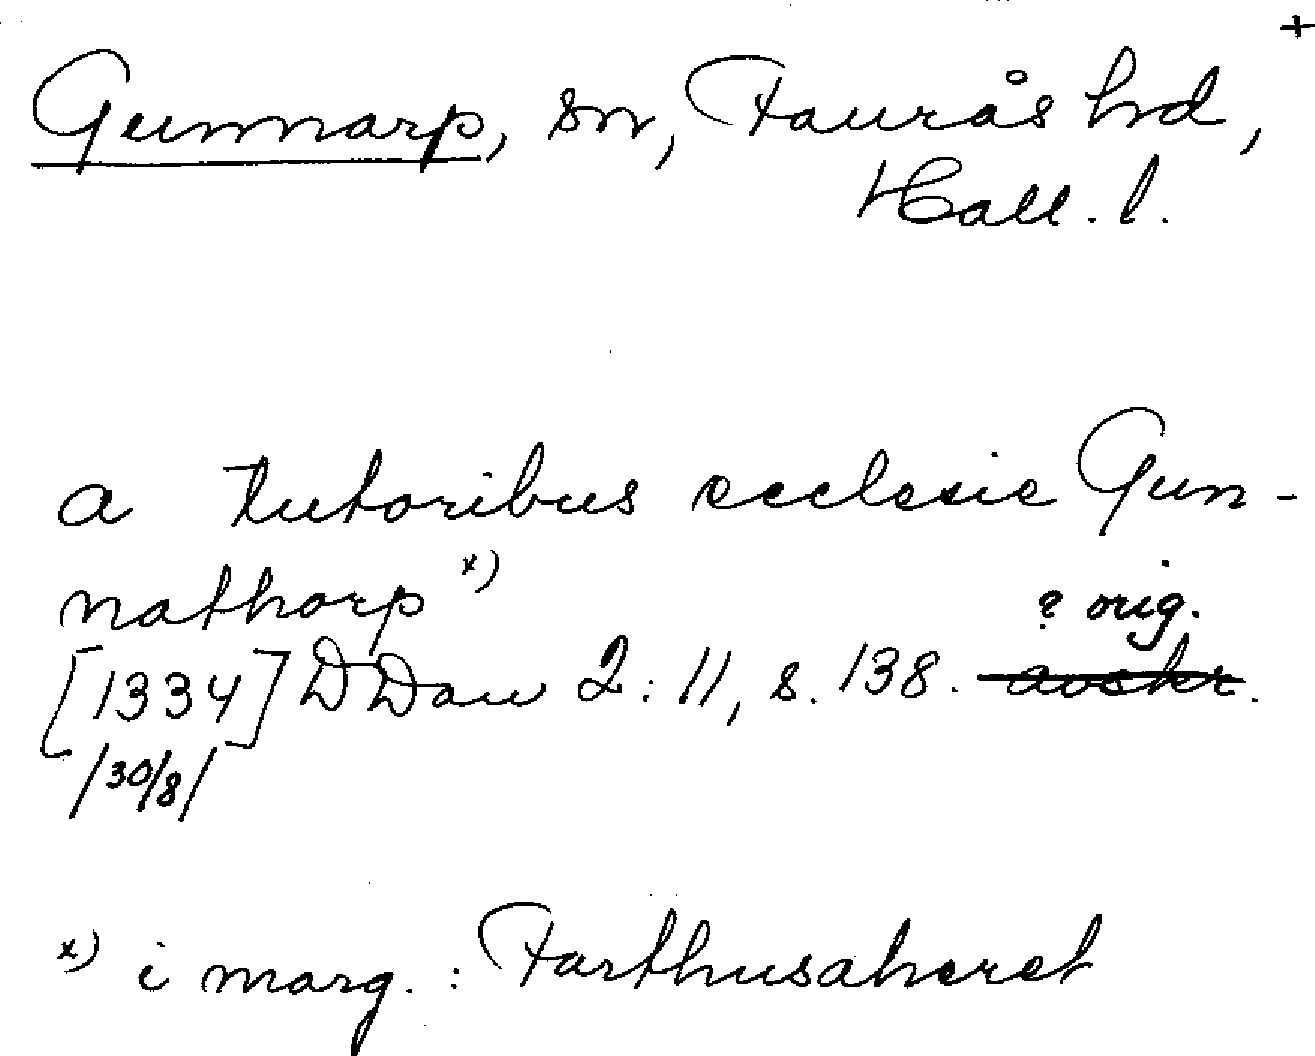 +
Gunnarp, sn, Faurås hd,
Hall. l.
a tutoribus ecclesie Gun-
nathorp x)
? orig.
[1334] DDan 2: 11, s. 138. avskr.
/30/8/
x) i marg.: Farthusaheret